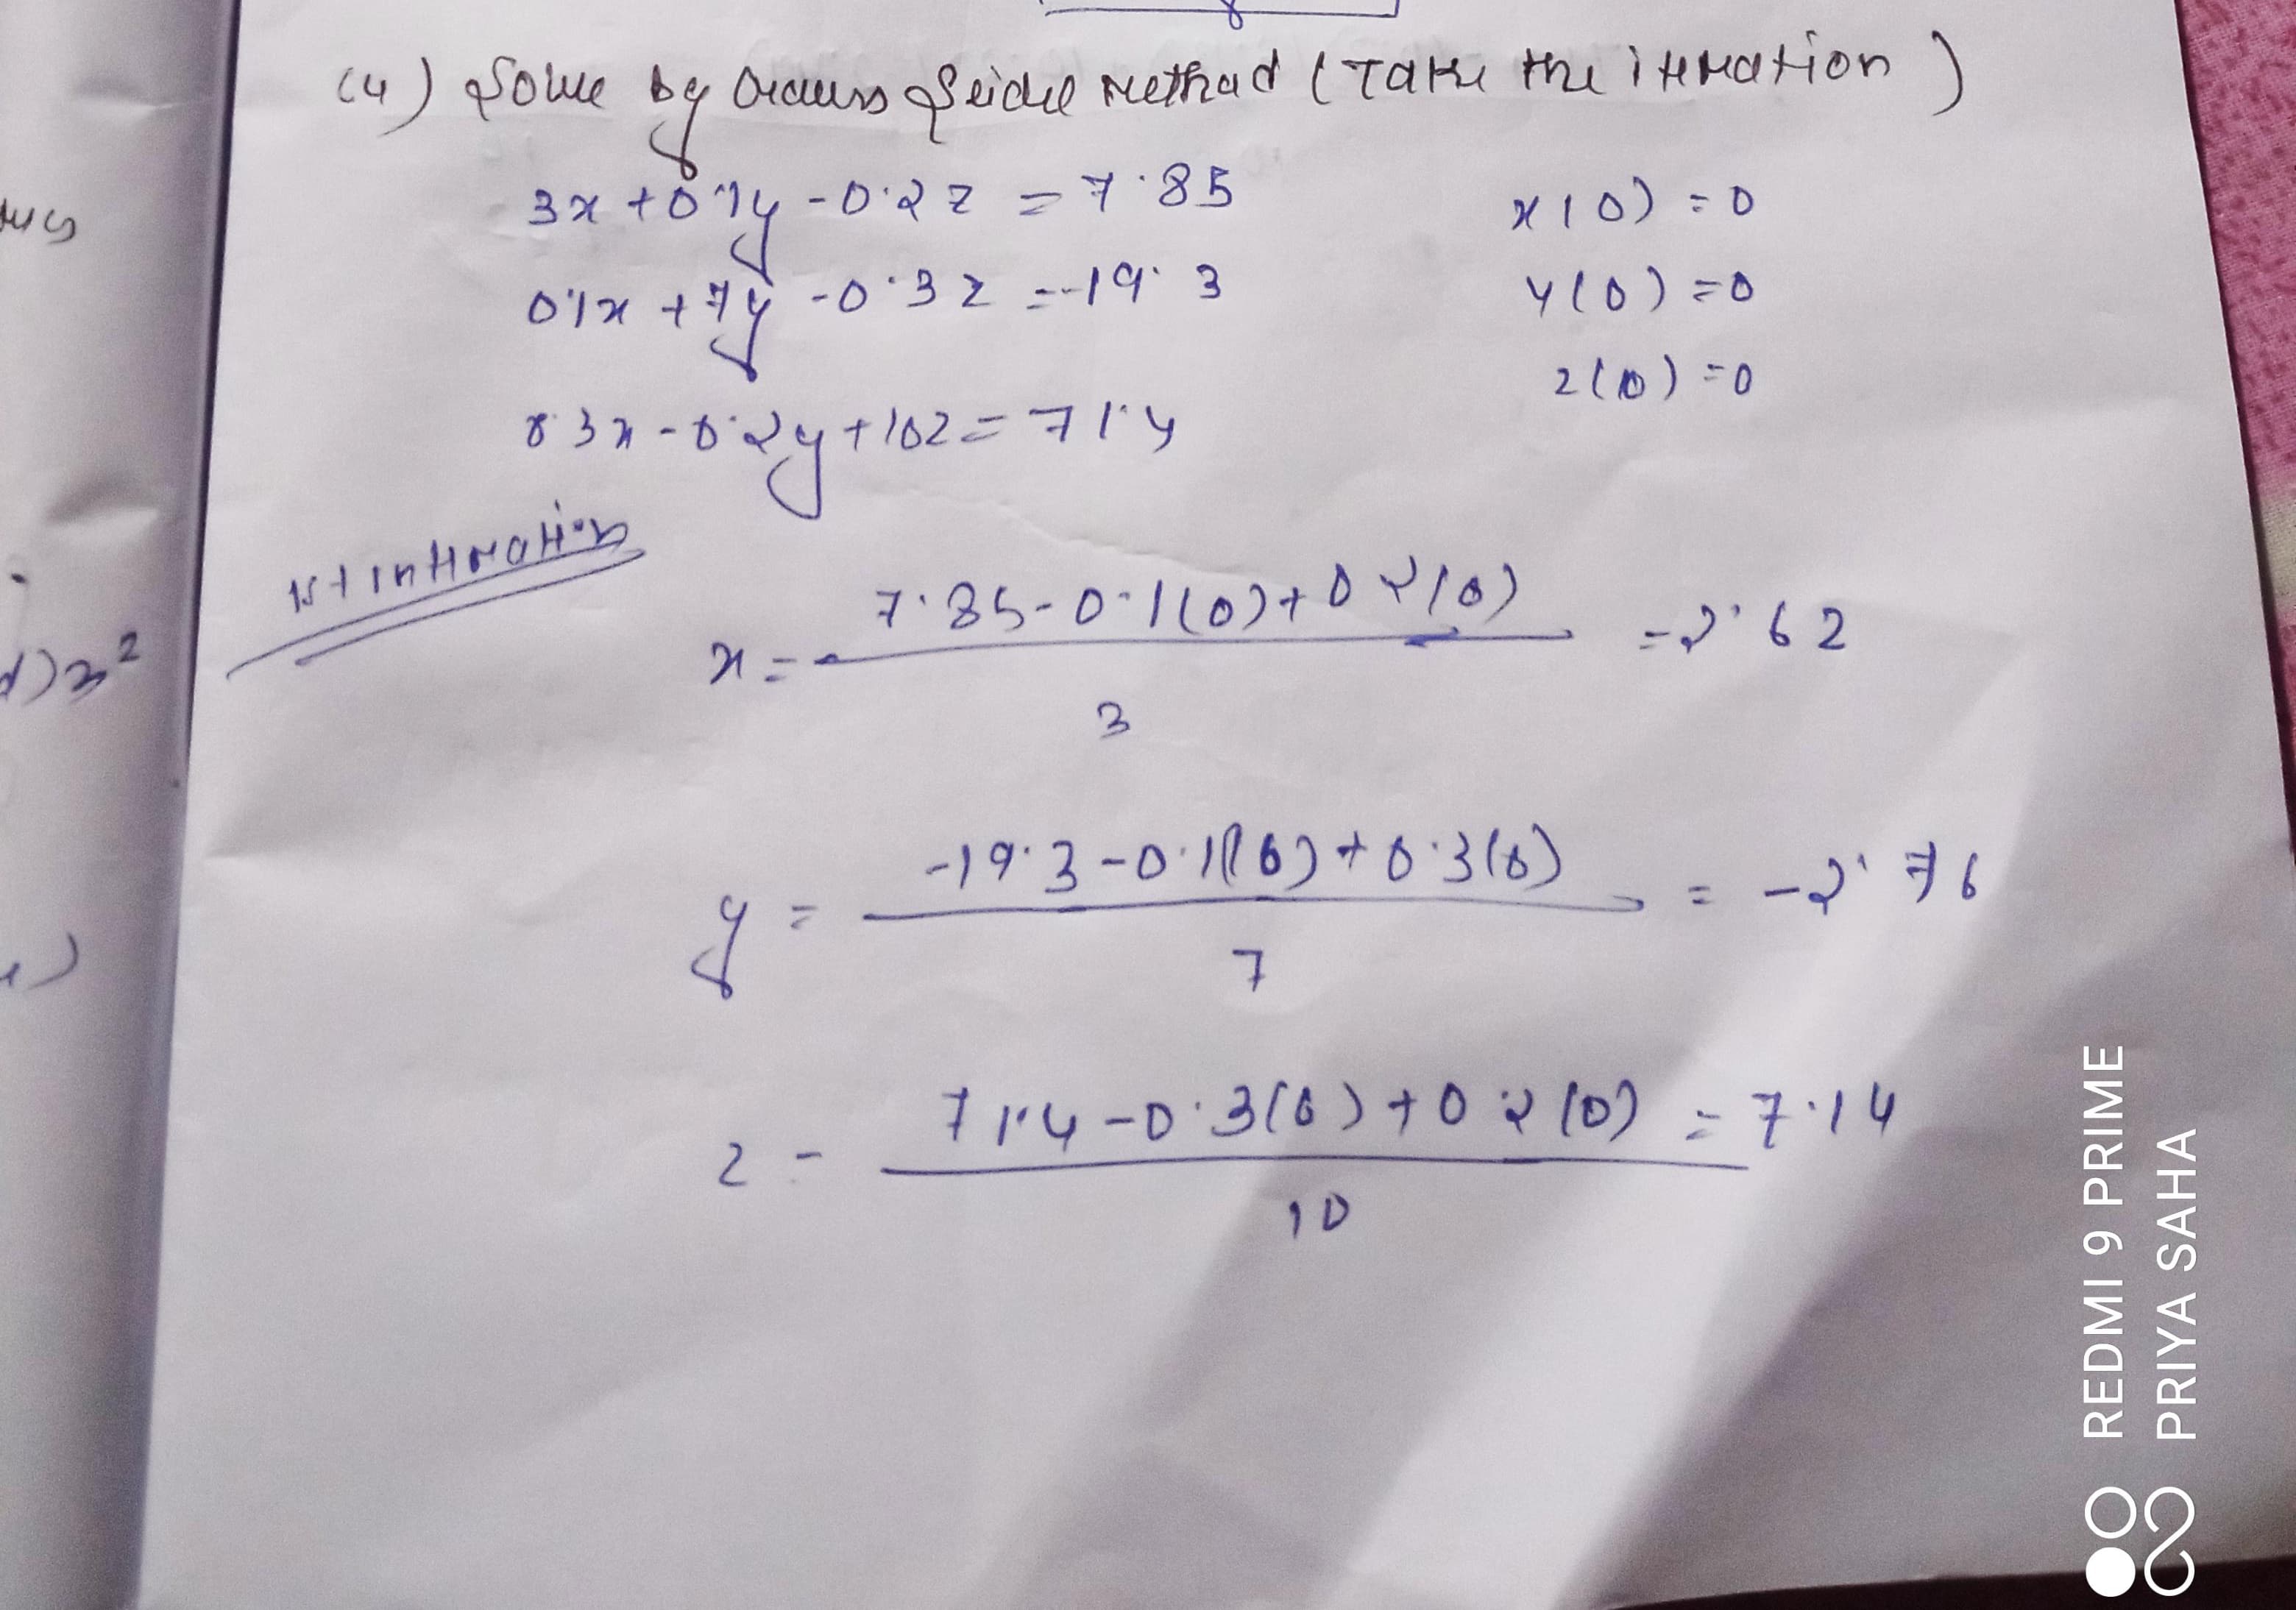 (4) Solve by Gauss Seidel Method (Take the iteration)
3x + 0.1y - 0.2z = 7.85 x(0) = 0
0.1x + 7y - 0.3z = -19.3 y(0) = 0
0.3x - 0.2y + 10z = 71.4 z(0) = 0
1st intteration
x = 7.85 - 0.1(0) + 0.2(0) / 3 = 2.62
y = -19.3 - 0.1(0) + 0.3(0) / 7 = -2.76
z = 71.4 - 0.3(0) + 0.2(0) / 10 = 7.14
d) 3²
REDMI 9 PRIME
PRIYA SAHA